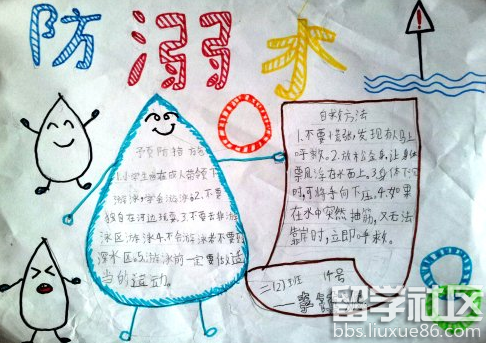 防溺水
预防措施
1.小学生应在成人带领下
游泳,学会游泳。2.不要
独自在河边玩耍。3.不要去非游
泳区游泳。4.不会游泳者不要到
深水区。5.游泳前一定要做适
当的运动。
自救方法
1.不要慌张,发现有人马上
呼救。2.放松全身,让身体
漂浮在水面上。3.身体下沉
时,可将手向下压。4.如果
在水中突然抽筋,又无法
靠岸时,立即呼救。
三(2)班 14号
留学社区
bbs.liuxue86.com